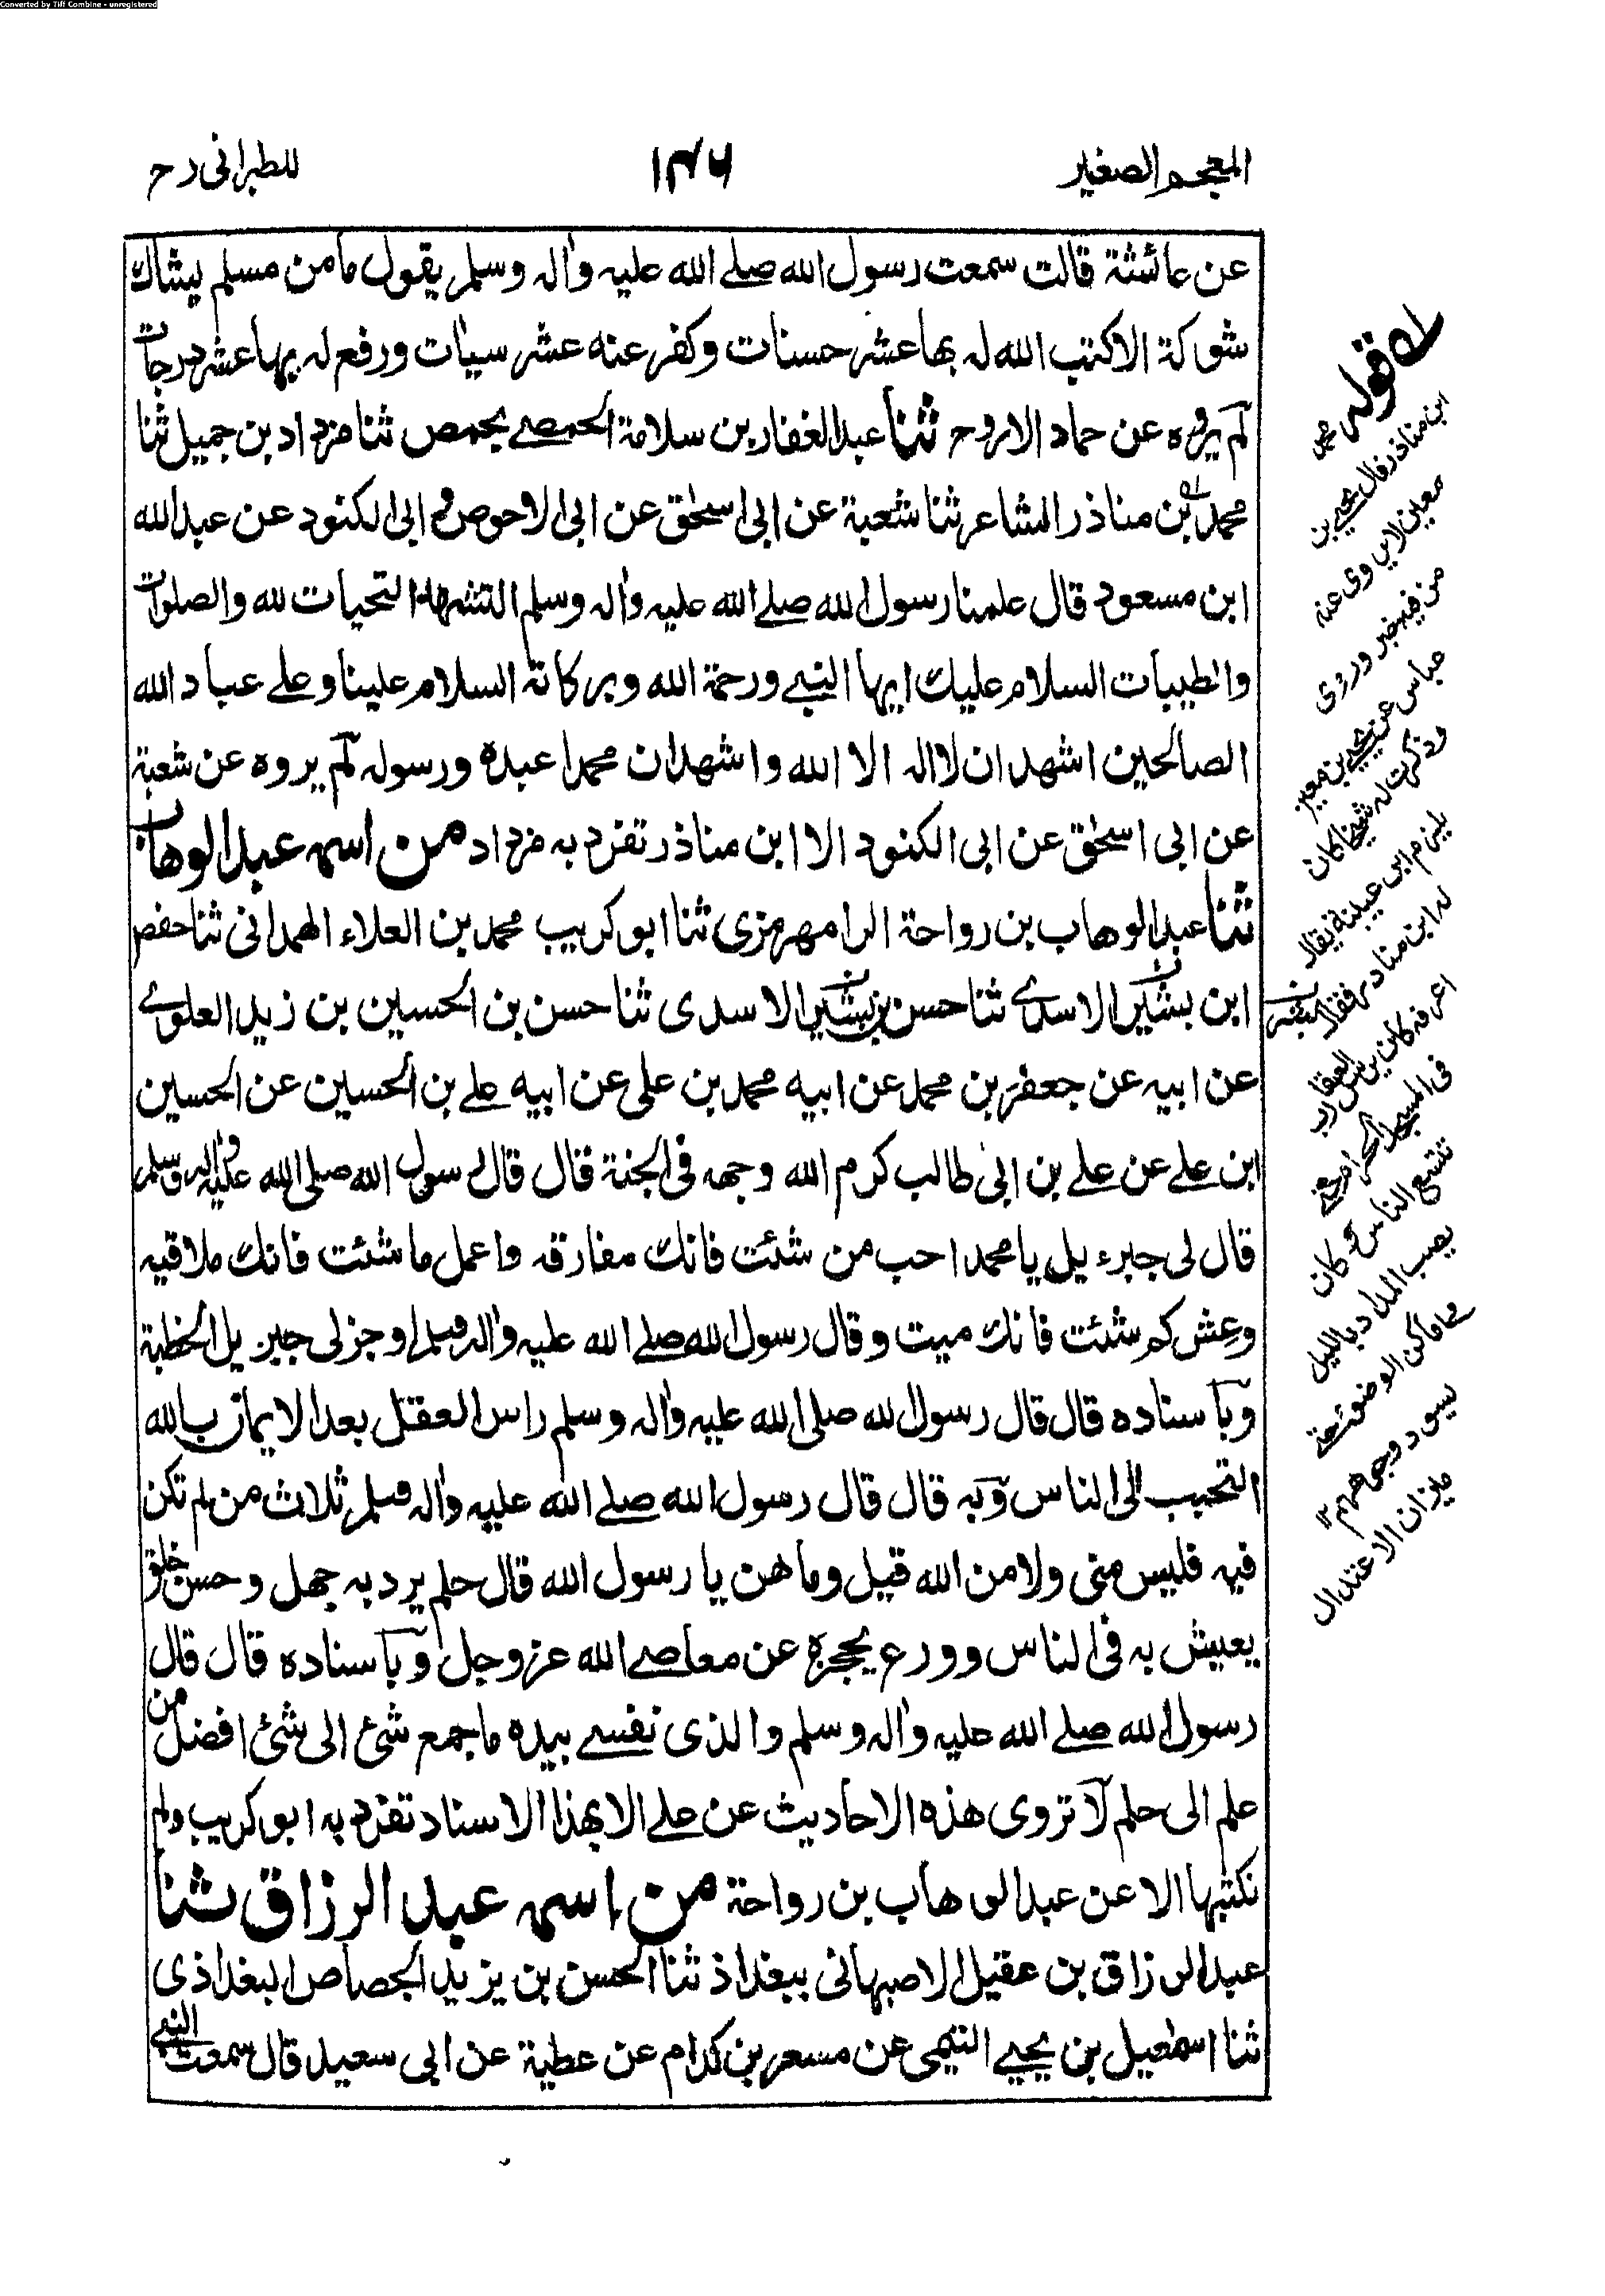 Converted by Tiff Combine - unregistered
المعجم الصغير
١٤٦
للطبرانى رح
عن عائشة قالت سمعت رسول الله صلے الله عليه واٰله وسلم يقول ما من مسلم يشاك
شوكة الا كتب الله له بها عشر حسنات وكفر عنه عشر سيأت ورفع له بها عشر درجات
لم يروه عن حماد الا روح ثنا عبد الغفار بن سلامة الحمصے بحمص ثنا مزداد بن جميل ثنا
محمد بن مناذر الشاعر ثنا شعبة عن ابى اسحٰق عن ابى الاحوص و ابى الكنود عن عبد الله
ابن مسعود قال علمنا رسول الله صلے الله عليه واٰله وسلم التشهد التحيات لله والصلوات
والطيبات السلام عليك ايها النبے ورحمة الله وبركاته السلام علينا وعلے عباد الله
الصالحين اشهد ان لا اله الا الله واشهد ان محمدا عبده ورسوله لم يروه عن شعبة
عن ابى اسحٰق عن ابى الكنود الا ابن مناذر تفرد به مزداد من اسمه عبد الوهاب
ثنا عبد الوهاب بن رواحة الرامهرمزى ثنا ابو كريب محمد بن العلاء الهمدانى ثنا حفص
ابن بشير الاسدے ثنا حسن بن بشير الاسدى ثنا حسن بن الحسين بن زيد العلوے
عن ابيه عن جعفر بن محمد عن ابيه محمد بن على عن ابيه علے بن الحسين عن الحسين
ابن علے عن علے بن ابى طالب كرم الله وجهه فى الجنة قال قال رسول الله صلى الله عليه واٰله وسلم
قال لى جبرءيل يا محمد احب من شئت فانك مفارقه واعمل ما شئت فانك ملاقيه
وعش كم شئت فانك ميت وقال رسول الله صلے الله عليه واٰله وسلم اوجز لى جبريل الخطبة
وبآسناده قال قال رسول الله صلى الله عليه واٰله وسلم راس العقل بعد الايمان بالله
التحبب الى الناس وبه قال قال رسول الله صلے الله عليه واٰله وسلم ثلاث من لم تكن
فيه فليس منى ولا من الله قيل وما هن يا رسول الله قال حلم يرد به جهل وحسن خلق
يعيش به فى الناس وورع يحجزه عن معاصے الله عز وجل وبآسناده قال قال
رسول الله صلے الله عليه واٰله وسلم والذى نفسے بيده ما جمع شئ الى شئ افضل من
علم الى حلم لا تروى هذه الاحاديث عن علے الا بهذا الاسناد تفرد به ابو كريب ولم
نكتبها الا عن عبد الوهاب بن رواحة من اسمه عبد الرزاق ثنا
عبد الرزاق بن عقيل الاصبهانى ببغداذ ثنا الحسن بن يزيد الجصاص البغداذى
ثنا اسمٰعيل بن يحيے التيمى عن مسعر بن كدام عن عطية عن ابى سعيد قال سمعت النبے
له قوله محمد
ابن مناذر قال يحيے بن
معين لا يروى عنه
من فيه خير وروى
عباس عن يحيے بن معين
وذكرت له شيخا كان
يلزم ابن عيينة يقال
له ابن مناذر فقال
اعرفه كان يرسل العقارب
فى المسجد الحرام حتے
تلسع الناس وكان
يصب المداد بالليل
فے اماكن الوضوء حتے
يسود وجوههم ١٢
ميزان الاعتدال